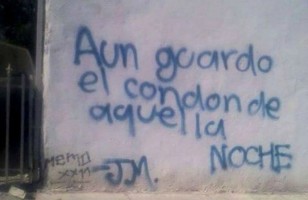 Aun guardo
el condon de
aquella
NOCHE
MEMO
XXII
JM.